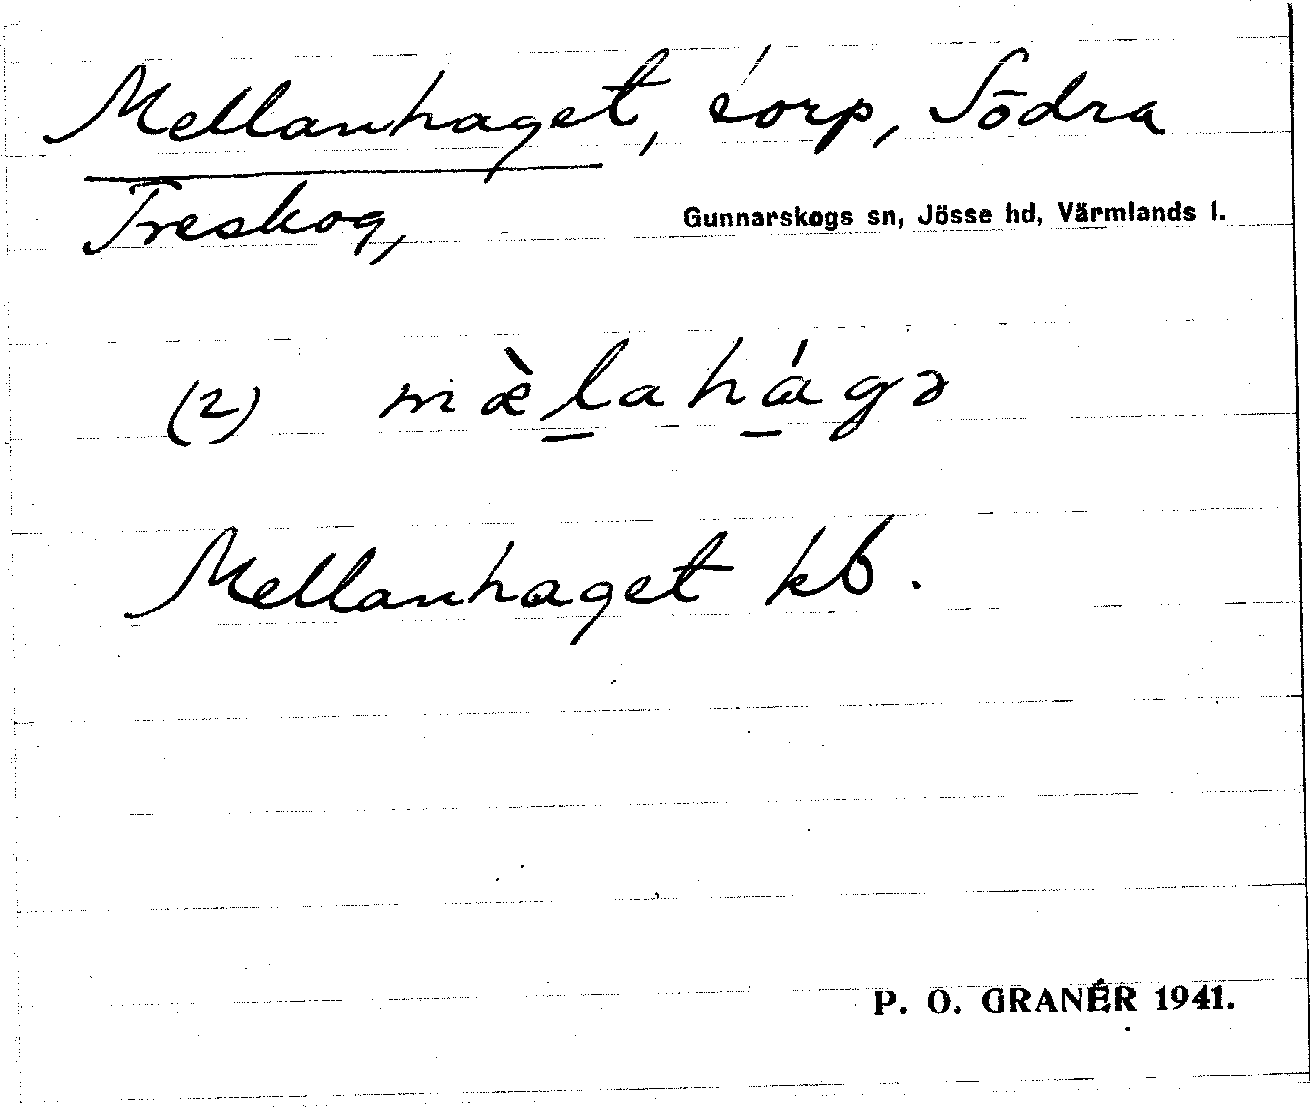 Mellanhaget, torp, Södra
Treskog,
Gunnarskogs sn, Jösse hd, Värmlands l.
(2) mæ̀l̠ahá̠gə
Mellanhaget kb.
P. O. GRANÉR 1941.